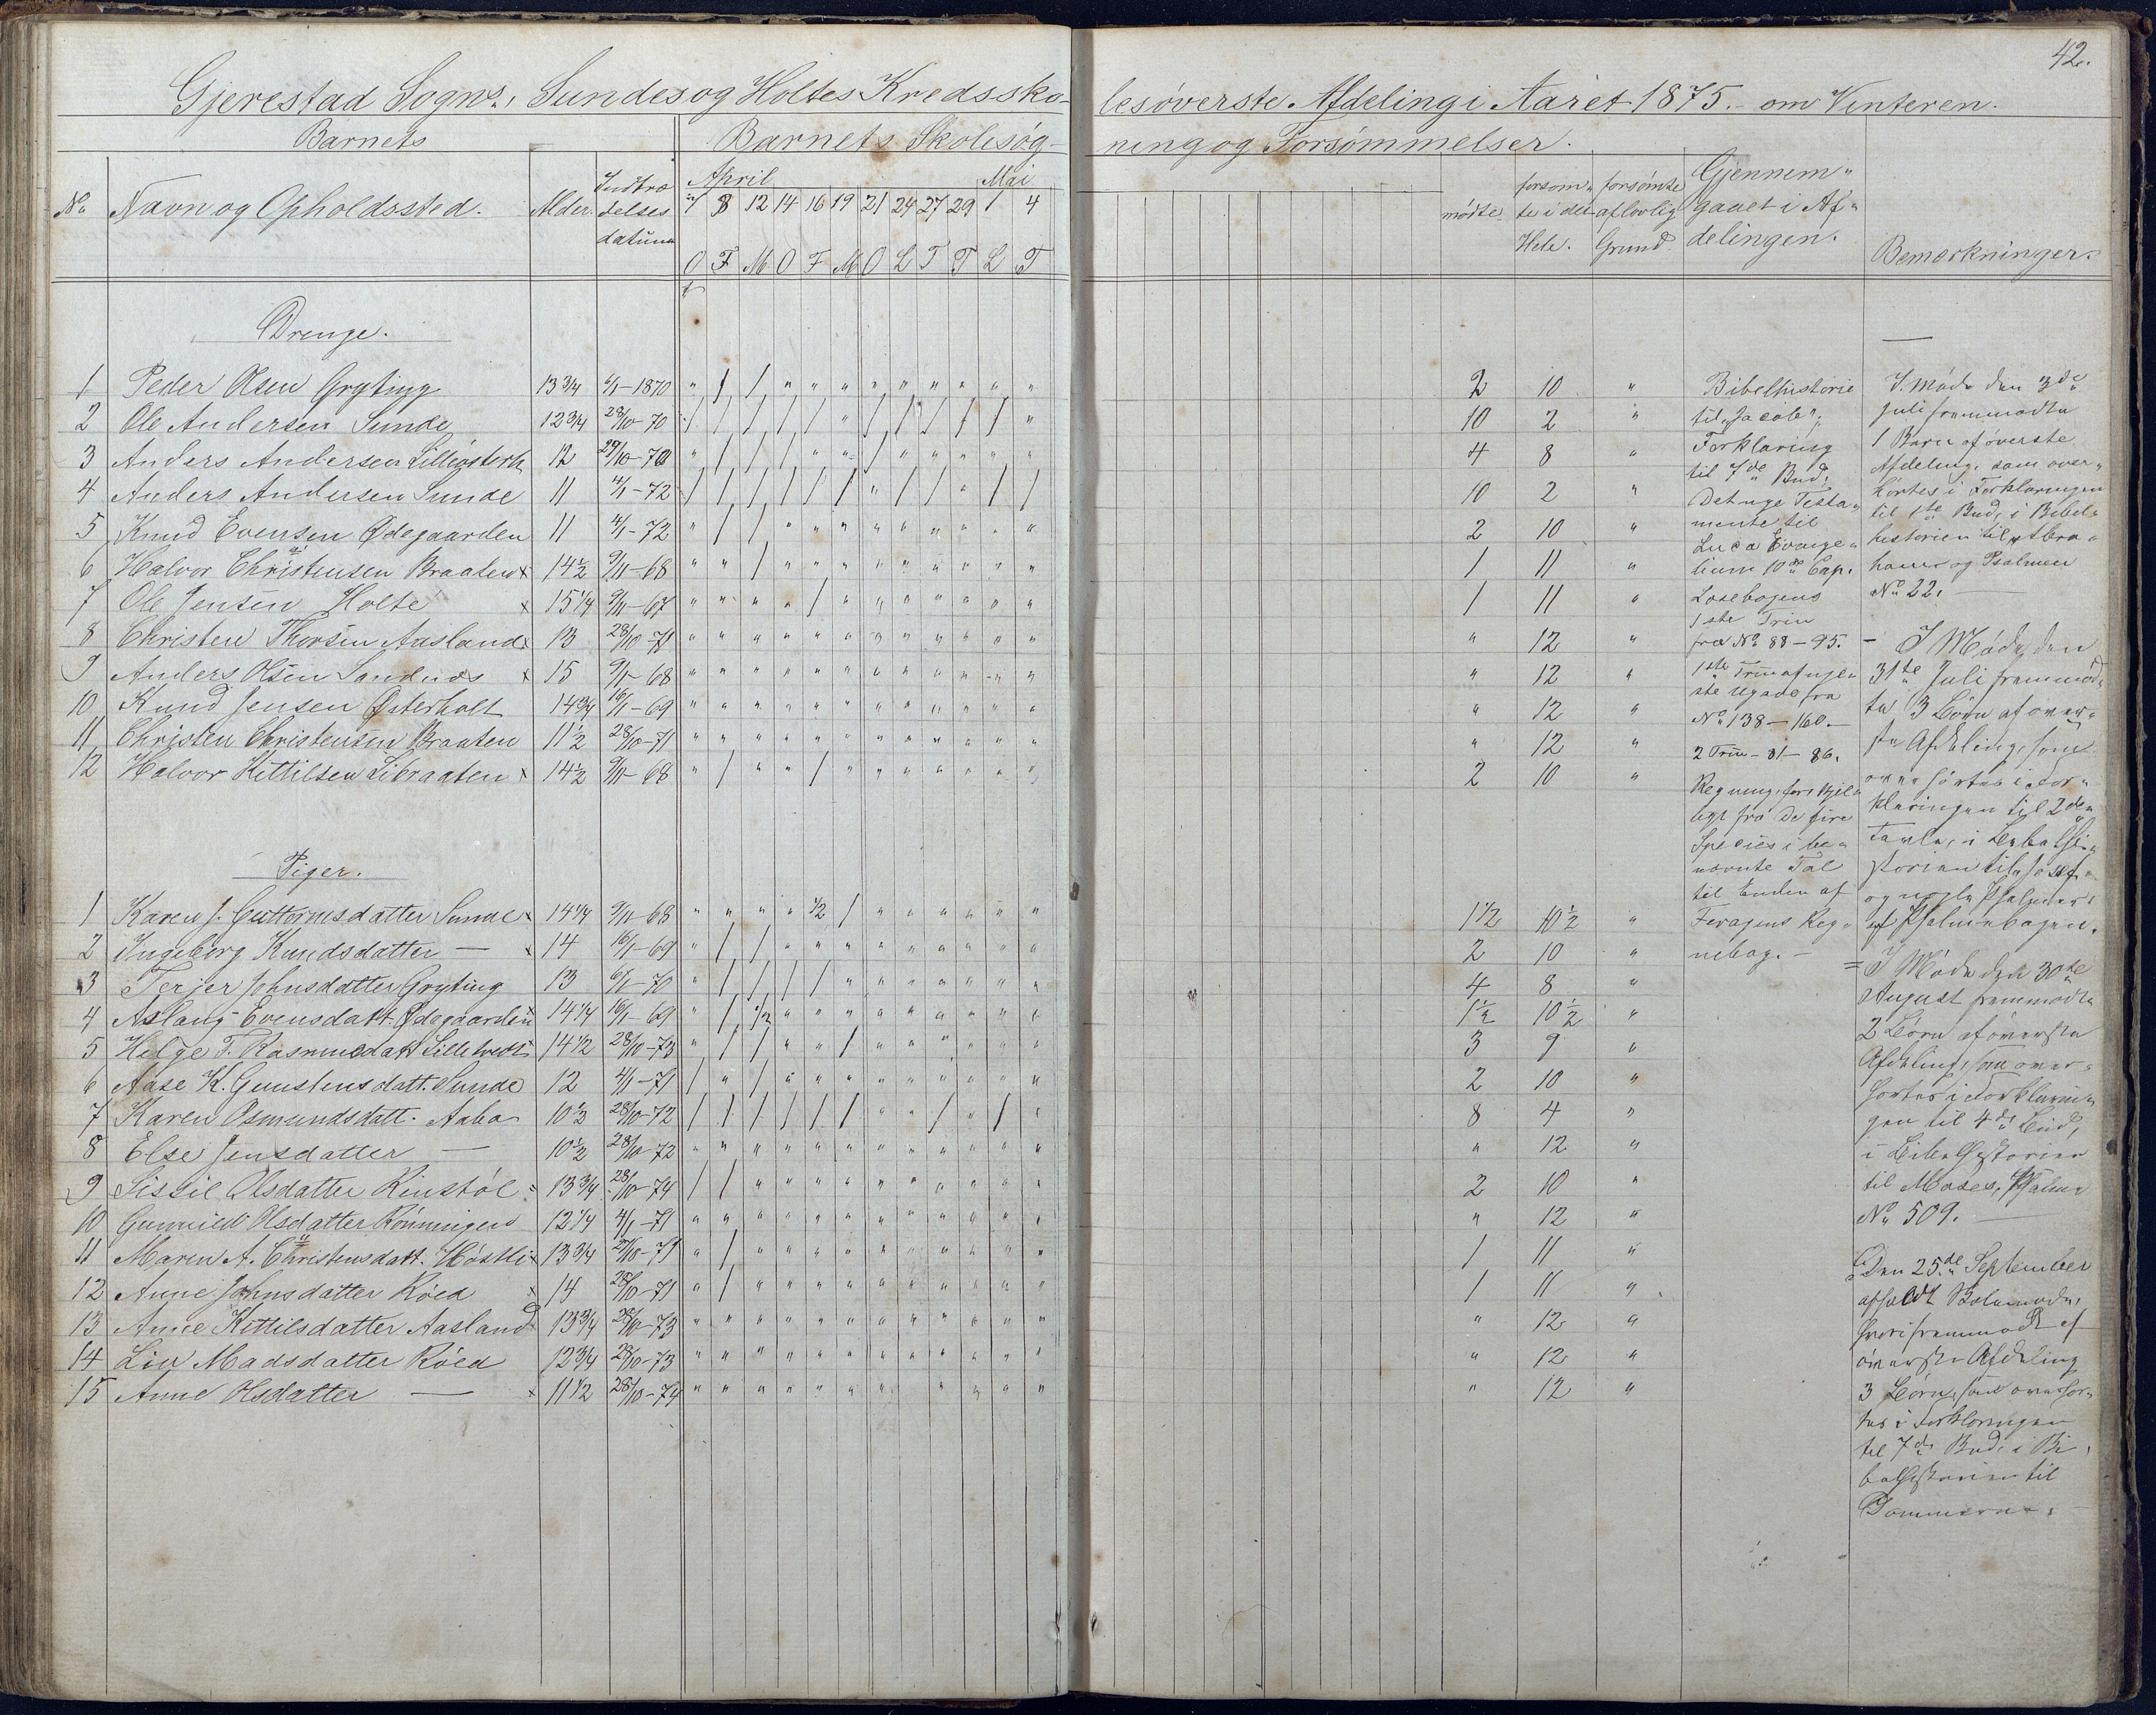 42.
Gjerestad Sogns, Sundes og Holtes Kredssko- lesöverste Afdeling i Aaret 1875.- om Vinteren.
Barnets Barnets Skolesög- ning og Forsömmelser.
No Navn og Opholdssted. Alder. Indtræ delses datum
April Mai
7 8 12 14 16 19 21 24 27 29 1 4
O F M O F M O L T T L T
mödte forsöm" te i det Hele. forsömte af lovlig Grund Gjennem" gaaet i Af" delingen. Bemærkninger.
Drenge.
1 Peder Olsen Gryting 13 3/4 6/1-1870 " / / " " " " " " " " " 2 10 "
2 Ole Andersen Sunde 12 3/4 28/10-70 / / / / / " / / / / / " 10 2 "
3 Anders Andersen Lilleösterh 12 29/10-70 " / / / " " / " " " " " 4 8 "
4 Anders Andersen Sunde 11 4/1-72 / / / / / / " / / " / / 10 2 "
5 Knud Evensen Ødegaarden 11 4/1-72 " / / " " " " " " " " " 2 10 "
6 Halvor Christensen Braaten x 14 1/2 9/11-68 " " / " " " " " " " " " 1 11 "
7 Ole Jensen Holte x 15 1/4 9/11-67 " " " " / " " " " " " " 1 11 "
8 Christen Thorsen Aasland x 13 28/10-71 " " " " " " " " " " " " " 12 "
9 Anders Olsen Sandnæs x 15 9/1-68 " " " " " " " " " " " " " 12 "
10 Knud Jensen Østerholt 14 3/4 16/1-69 " " " " " " " " " " " " " 12 "
11 Christen Christensen Braaten 11 1/2 28/10-71 " " " " " " " " " " " " " 12 "
12 Halvor Kittilsen Libraaten x 14 1/2 9/11-68 " / " " / " " " " " " " 2 10 "
Piger.
1 Karen J. Guttormsdatter Sunde x 14 1/4 9/11-68 " " " " 1/2 / " " " " " " 1 1/2 10 1/2 "
2 Ingeborg Knudsdatter — x 14 16/1-69 " / / " " " " " " " " " 2 10 "
3 Terjer Johnsdatter Gryting 13 6/1-70 " / / / / " " " " " " " 4 8 "
4 Aslaug Evensdatt. Ødegaarden 14 1/4 16/1-69 " / 1/2 " " " " " " " " " 1 1/2 10 1/2 "
5 Helge T. Rasmusdatt Lilletvedt 14 1/2 28/10-73 " / / " " / " " " " " " 3 9 "
6 Aase K. Gunstensdatt. Sunde 12 4/1-71 / " / " " " " " " " " " 2 10 "
7 Karen Osmundsdatt. Aabø 10 1/2 28/10-72 / / / / / / " " / " / " 8 4 "
8 Else Jensdatter — 10 1/2 28/10-72 " " " " " " " " " " " " " 12 "
9 Sissil Olsdatter Kinstöl 13 3/4 28/10-74 / / " " " " " " " " " " 2 10 "
10 Gunnild Olsdatter Rönningen 12 1/4 4/1-71 " " " " " " " " " " " " " 12 "
11 Maren A. Christensdatt. Höstli x 13 3/4 27/10-71 " / " " " " " " " " " " 1 11 "
12 Anne Johnsdatter Röed x 14 28/10-71 " / " " " " " " " " " " 1 11 "
13 Anne Kittilsdatter Aasland 13 3/4 28/10-73 " " " " " " " " " " " " " 12 "
14 Liv Madsdatter Röed 12 3/4 28/10-73 " " " " " " " " " " " " " 12 "
15 Anne Olsdatter — x 11 1/2 28/10-74 " " " " " " " " " " " " " 12 "
Bibelhistorie
til "Jacob";
Forklaring
til 7de Bud;
Det nye Testa"
mente til
Luca Evange"
lium 10de Cap.
Læsebogens
1ste Trin
fra No 88-95.
1ste Trin af
No 138-160.-
2 Trin - 81-86.
Regning, forskjel"
ligt fra De fire
Species i be"
nævnte Tal
til Enden af
Reg"
nebog.-
I Møde den 3de
Juli fremmödte
1 Barn af överste
Afdeling, som over"
hörtes i Forklaringen
til 1ste Bud, i Bibel"
historien til "Abra"
ham" og Psalmen
No 22. —
- I Møde den
31te Juli fremmöd"
te 3 Börn af över"
ste Afdeling, som
overhörtes i For"
klaringen til 2den
Tavle, i Bibelhi"
storien til Josef
og nogle Psalmer
af Psalmebogen.
= I Møde den 30te
August fremmödte
2 Börn af överste
Afdeling, som over"
hörtes i Forklarin"
gen til 4de Bud,
i Bibelhistorien
til Moses, Psalme
No 509. —
Den 25de September
afholdt
hvori fremmödte af
överste Afdeling
3 Börn, som overhör"
tes i Forklaringen
til 7de Bud, i Bi"
belhistorien til
Dommerne.